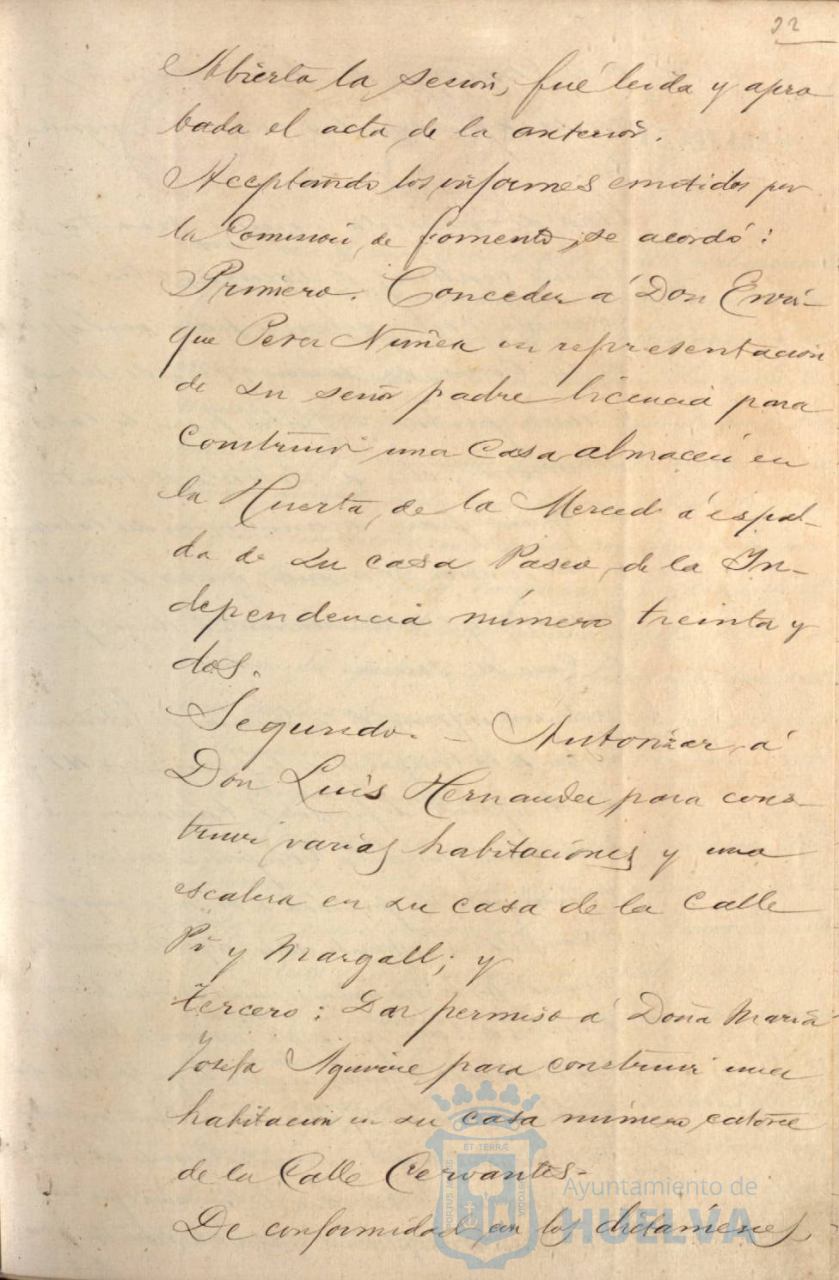 22
Abierta la sesion, fué leida y apro
bada el acta de la anterior.
Aceptando los informes emitidos por
la Comision de fomento, se acordó:
Primero. Conceder á Don Enri-
que Perez Nuñez en representacion
de su señor padre licencia para
construir una casa almacen en
la Huerta de la Merced á espal-
da de su casa Paseo de la In-
dependencia número treinta y
dos.
Segundo. - Autorizar á
Don Luis Hernandez para cons-
truir varias habitaciones y una
escalera en su casa de la Calle
Pi y Margall; y
tercero: Dar permiso á Doña Maria
Josefa Aguirre para construir una
habitacion en su casa número catorce
de la Calle Cervantes-
De conformidad con los dictámenes
ET TERRÆ
PORTUS MARIS
CUSTODIA
Ayuntamiento de
HUELVA